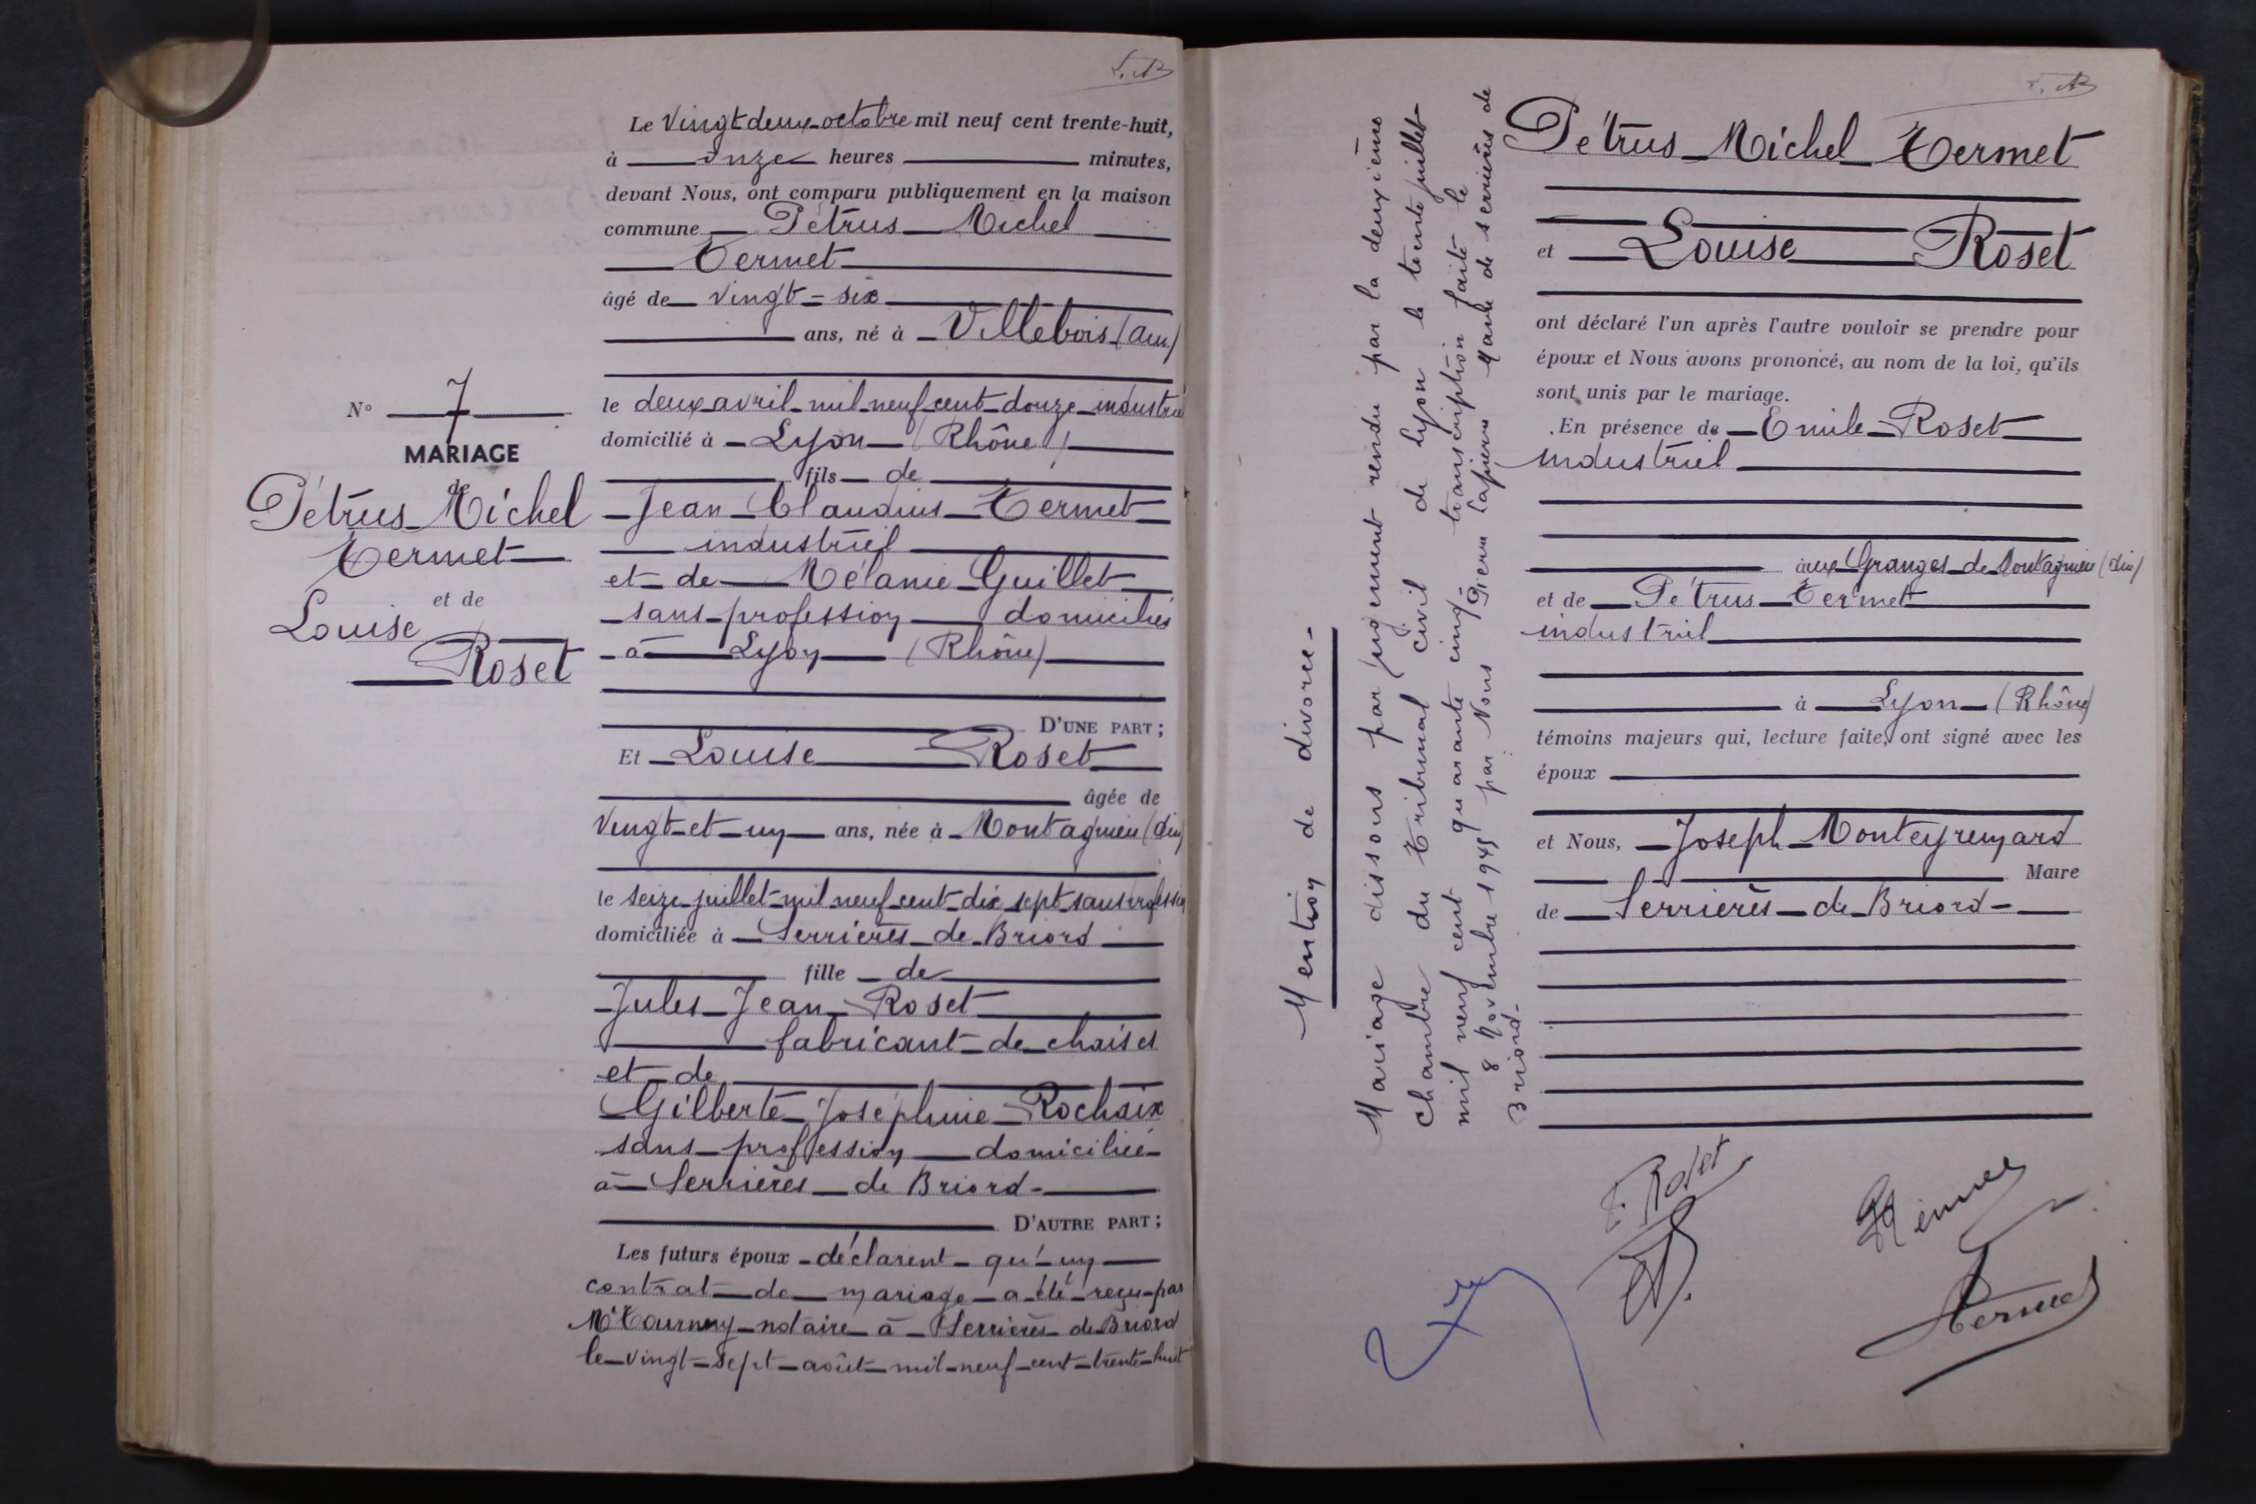 Le Vingt deux octobre mil neuf cent trente-huit,
à onze heures minutes,
devant Nous, ont comparu publiquement en la maison
commune Pétrus Michel
Termet
âgé de vingt-six
ans, né à Villebois (Ain)
le deux avril mil neuf cent douze industriel
domicilié à Lyon (Rhône)
fils de
Jean Claudius Termet
industriel
et de Mélanie Guillet
sans profession domiciliés
à Lyon (Rhône)
D'UNE PART ;
Et Louise Roset
âgée de
vingt et un ans, née à Montagnieu (Ain)
le seize juillet mil neuf cent dix sept sans profession
domiciliée à Serrières de Briord
fille de
Jules Jean Roset
fabricant de chaises
et de
Gilberte Joséphine Rochaix
sans profession domiciliée
à Serrières de Briord
D'AUTRE PART ;
Les futurs époux déclarent qu'un
contrat de mariage a été reçu par
Me Tournery notaire à Serrières de Briord
le vingt-sept août mil neuf cent trente-huit
N° 7
MARIAGE
de
Pétrus Michel
Termet
et de
Louise
Roset
Mention de divorce
Mariage dissous par jugement rendu par la deuxième
chambre du Tribunal civil de Lyon le trente juillet
mil neuf cent quarante cinq. transcription faite le
8 Novembre 1945 par Nous Pierre Maire de Serrières de
Briord.
Pétrus Michel Termet
et Louise Roset
ont déclaré l'un après l'autre vouloir se prendre pour
époux et Nous avons prononcé, au nom de la loi, qu'ils
sont unis par le mariage.
En présence de Emile Roset
industriel
aux Granges de Montagnieu (Ain)
et de Pétrus Termet
industriel
à Lyon (Rhône)
témoins majeurs qui, lecture faite, ont signé avec les
époux
et Nous, Joseph Monteyremard
Maire
de Serrières de Briord
E. Roset
Termet